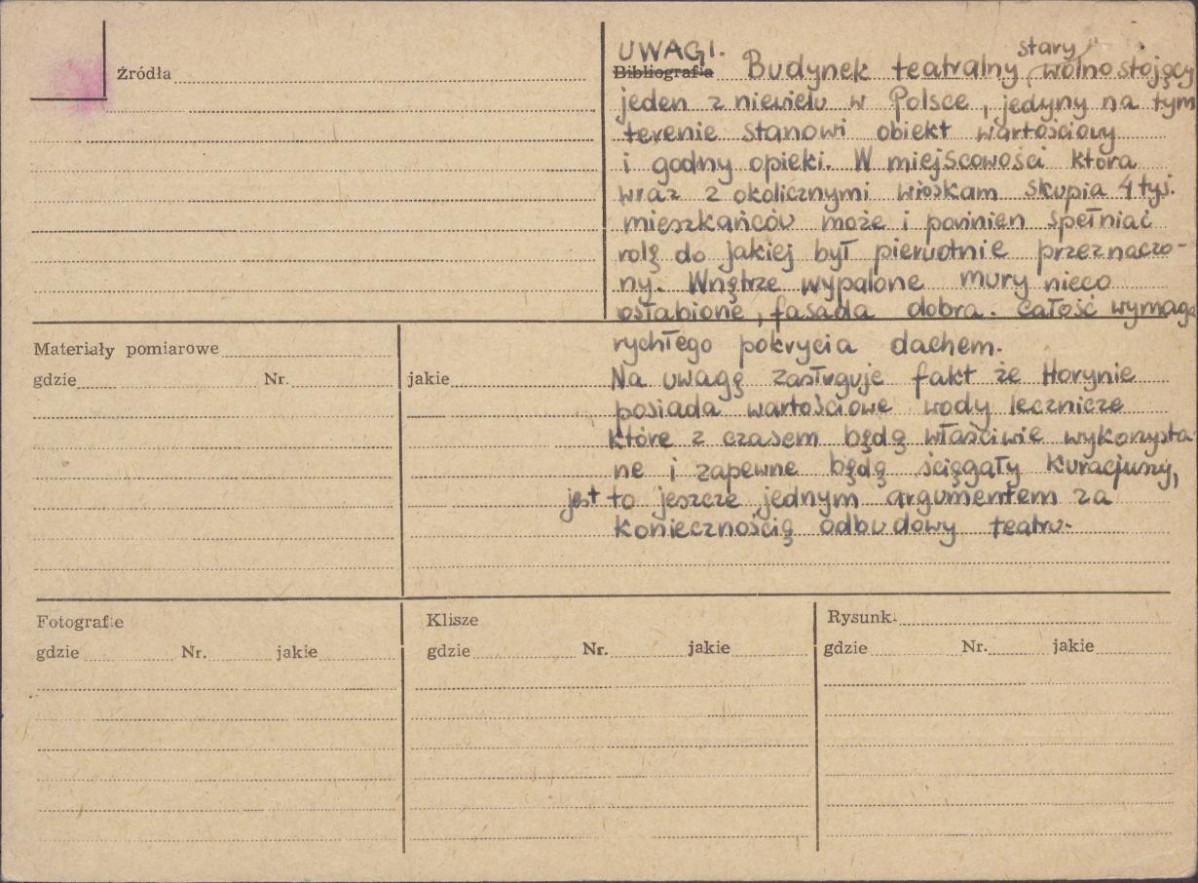 Źródła
UWAGI.
Bibliografia
stary
Budynek teatralny wolnostojący
jeden z niewielu w Polsce, jedyny na tym
terenie stanowi obiekt wartościowy
i godny opieki. W miejscowości która
wraz z okolicznymi wioskam skupia 4 tyś.
mieszkańców może i powinien spełniać
rolę do jakiej był pierwotnie przeznaczo-
ny. Wnętrze wypalone mury nieco
osłabione, fasada dobra. Całość wymaga
rychłego pokrycia dachem.
Na uwagę zasługuje fakt że Horynie
posiada wartościowe wody lecznicze
które z czasem będą właściwie wykorzysta-
ne i zapewne będą ściągały kuracjuszy,
jest to jeszcze jednym argumentem za
koniecznością odbudowy teatru.
Materiały pomiarowe
gdzie Nr. jakie
Fotografie
gdzie Nr. jakie
Klisze
gdzie Nr. jakie
Rysunki
gdzie Nr. jakie